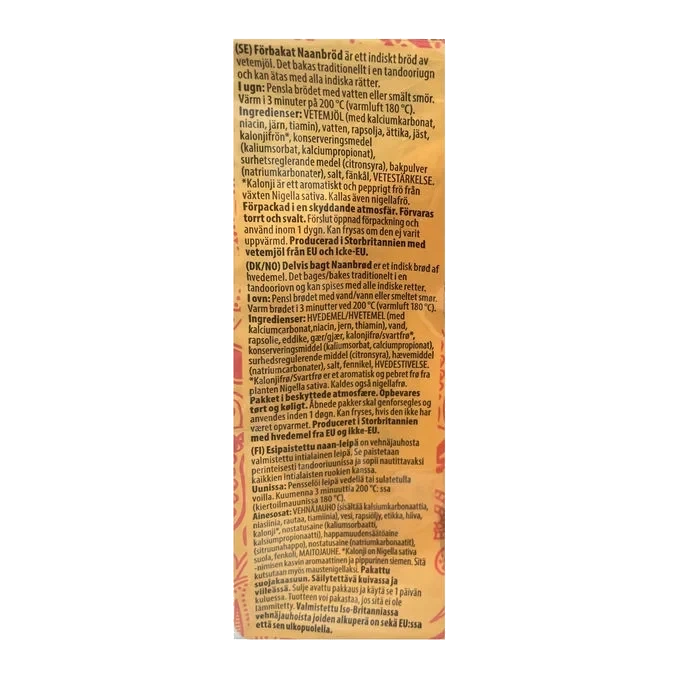 (SE) Förbakat Naanbröd är ett indiskt bröd av
vetemjöl. Det bakas traditionellt i en tandooriugn
och kan ätas med alla indiska rätter.
I ugn: Pensla brödet med vatten eller smält smör.
Värm i 3 minuter på 200 °C (varmluft 180 °C).
Ingredienser: VETEMJÖL (med kalciumkarbonat,
niacin, järn, tiamin), vatten, rapsolja, ättika, jäst,
kalonjifrön*, konserveringsmedel
(kaliumsorbat, kalciumpropionat),
surhetsreglerande medel (citronsyra), bakpulver
(natriumkarbonater), salt, fänkål, VETESTÄRKELSE.
*Kalonji är ett aromatiskt och pepprigt frö från
växten Nigella sativa. Kallas även nigellafrö.
Förpackad i en skyddande atmosfär. Förvaras
torrt och svalt. Förslut öppnad förpackning och
använd inom 1 dygn. Kan frysas om den ej varit
uppvärmd. Producerad i Storbritannien med
vetemjöl från EU och Icke-EU.
(DK/NO) Delvis bagt Naanbrød er et indisk brød af
hvedemel. Det bages/bakes traditionelt i en
tandooriovn og kan spises med alle indiske retter.
I ovn: Pensl brødet med vand/vann eller smeltet smør.
Varm brødet i 3 minutter ved 200 °C (varmluft 180 °C).
Ingredienser: HVEDEMEL/HVETEMEL (med
kalciumcarbonat,niacin, jern, thiamin), vand,
rapsolie, eddike, gær/gjær, kalonjifrø/svartfrø*,
konserveringsmiddel (kaliumsorbat, calciumpropionat),
surhedsregulerende middel (citronsyra), hævemiddel
(natriumcarbonater), salt, fennikel, HVEDESTIVELSE.
*Kalonjifrø/Svartfrø er et aromatisk og pebret frø fra
planten Nigella sativa. Kaldes også nigellafrø.
Pakket i beskyttede atmosfære. Opbevares
tørt og køligt. Åbnede pakker skal genforsegles og
anvendes inden 1 døgn. Kan fryses, hvis den ikke har
været opvarmet. Produceret i Storbritannien
med hvedemel fra EU og ikke-EU.
(FI) Esipaistettu naan-leipä on vehnäjauhosta
valmistettu intialainen leipä. Se paistetaan
perinteisesti tandooriuunissa ja sopii nautittavaksi
kaikkien intialaisten ruokien kanssa.
Uunissa: Pensselöi leipä vedellä tai sulatetulla
voilla. Kuumenna 3 minuuttia 200 °C: ssa
(kiertoilmauunissa 180 °C).
Ainesosat: VEHNÄJAUHO (sisältää kalsiumkarbonaattia,
niasiinia, rautaa, tiamiinia), vesi, rapsiöljy, etikka, hiiva,
kalonji*, nostatusaine (kaliumsorbaatti,
kalsiumpropionaatti), happamuudensäätöaine
(sitruunahappo), nostatusaine (natriumkarbonaatit),
suola, fenkoli, MAITOJAUHE. *Kalonji on Nigella sativa
-nimisen kasvin aromaattinen ja pippurinen siemen. Sitä
kutsutaan myös maustenigellaksi. Pakattu
suojakaasuun. Säilytettävä kuivassa ja
viileässä. Sulje avattu pakkaus ja käytä se 1 päivän
kuluessa. Tuotteen voi pakastaa, jos sitä ei ole
lämmitetty. Valmistettu Iso-Britanniassa
vehnäjauhoista joiden alkuperä on sekä EU:ssa
että sen ulkopuolella.